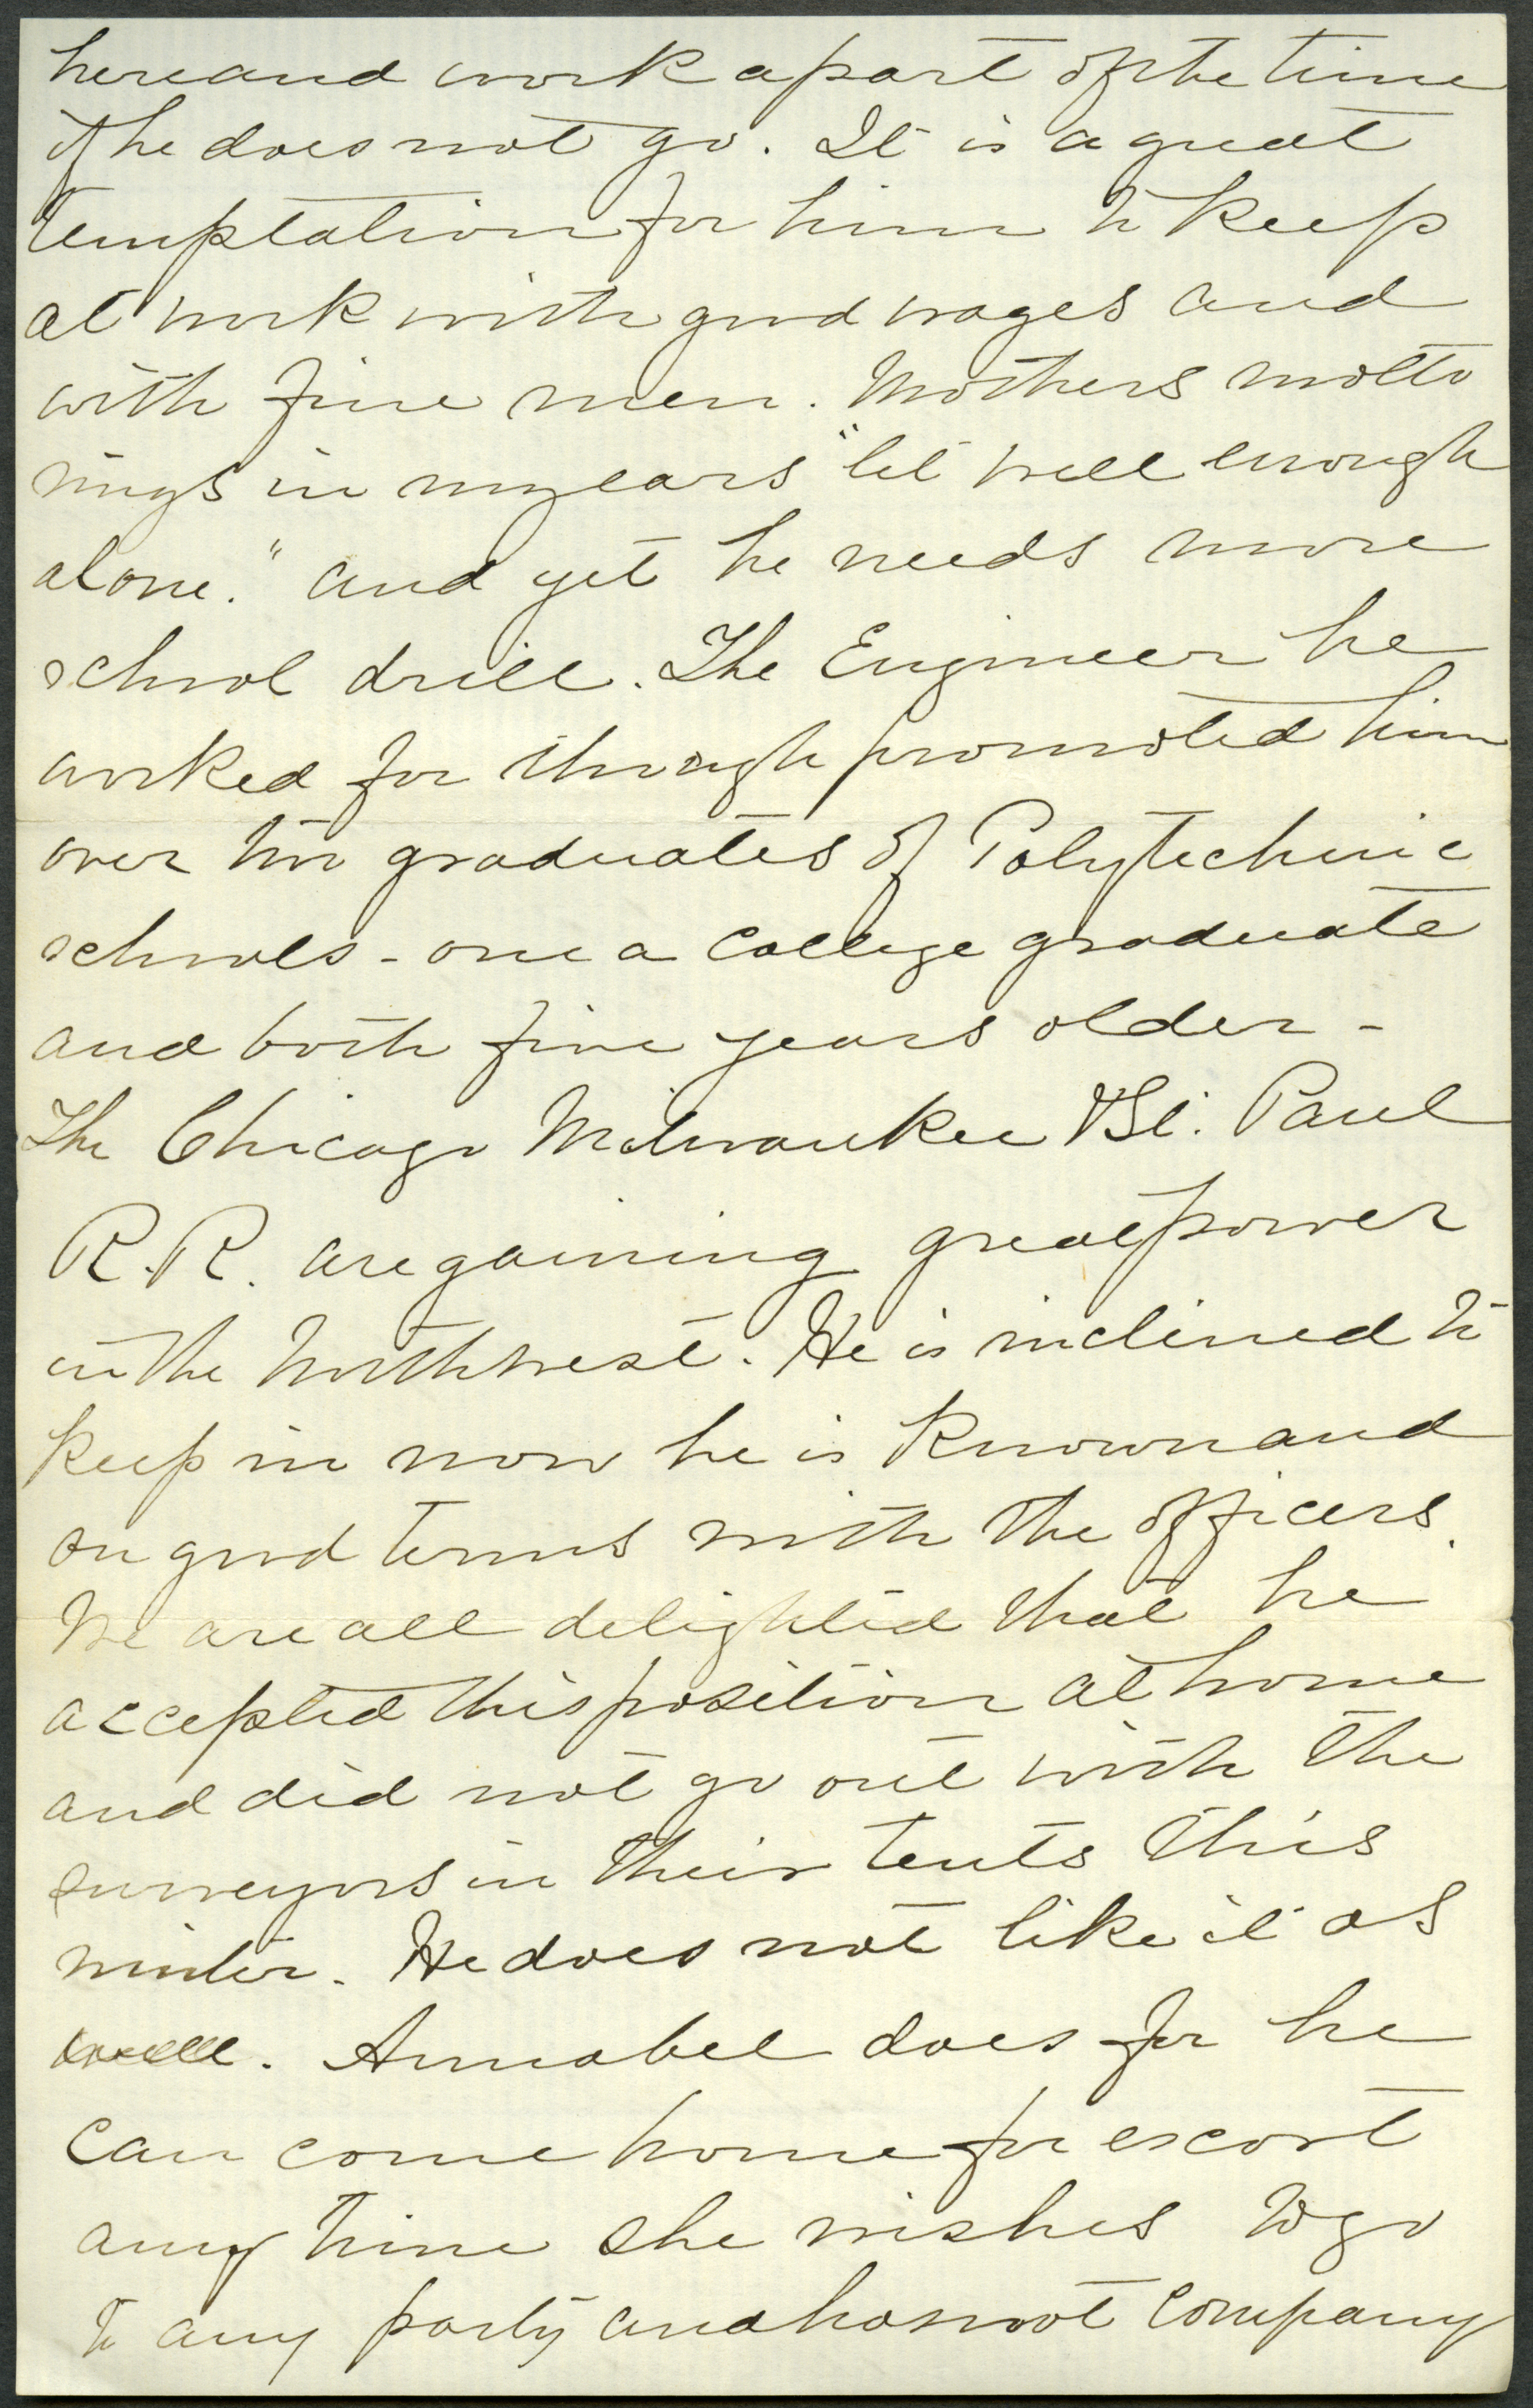 here and work a part of the time
if he does not go. It is a great
temptation for him to keep
at work with good wages and
with fine men. Mothers motto
rings in my ears "let well enough
alone." and yet he needs more
school drill. The Engineer he
worked for though promoted him
over two graduates of Polytechnic
schools - one a College graduate
and both five years older -
The Chicago Milwaukee & St. Paul
R.R. are gaining great power
in the Northwest. He is inclined to
keep in now he is known and
on good terms with the officers.
We are all delighted that he
accepted this position at home
and did not go out with the
surveyors in their tents this
winter. He does not like it as
well. Annabel does for he
can come home for escort
any time she wishes to go
to any party and has not company